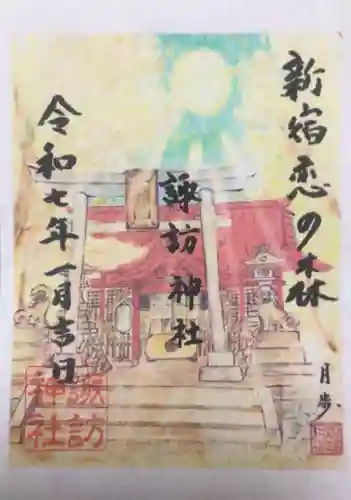 新宿恋の森
諏訪神社
令和七年一月吉日
月歩
諏訪
神社